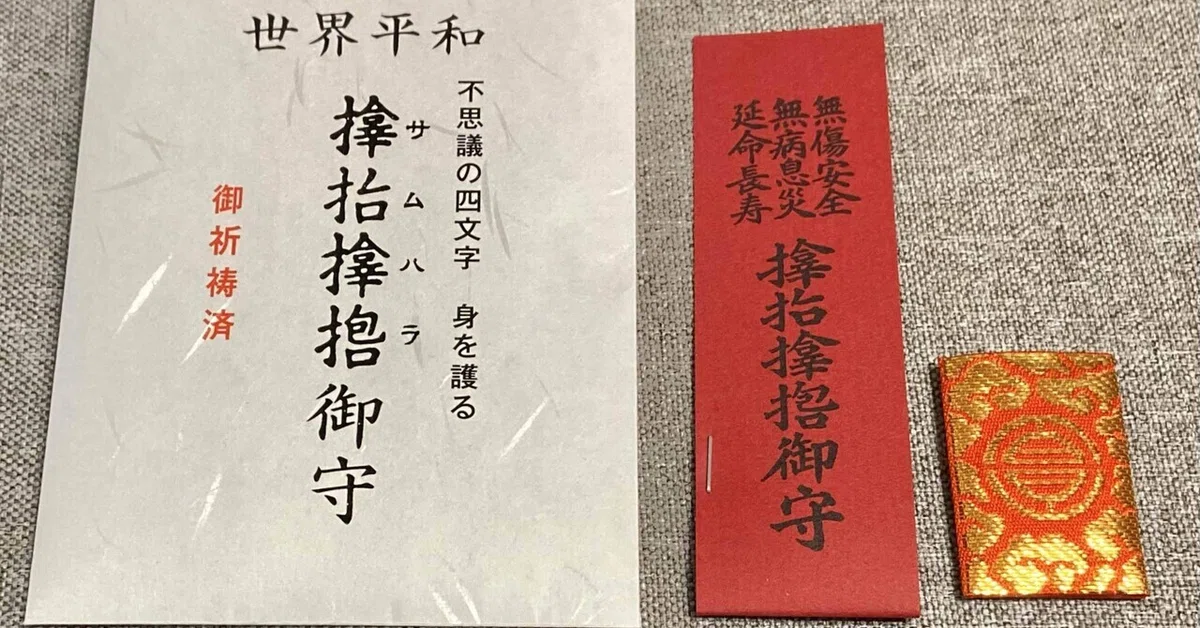 世界平和
不思議の四文字　身を護る
サムハラ
御守
御祈祷済
無傷安全
無病息災
延命長寿
御守